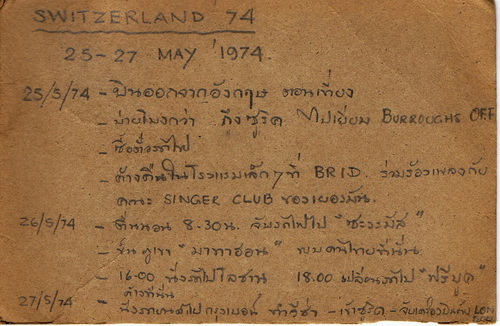 SWITZERLAND 74
25-27 MAY 1974.
25/5/74 - บินออกจากอังกฤษ ตอนเที่ยง
- บ่ายโมงกว่า ถึงซูริค ไปเยี่ยม BURROUGHS OFF
- ซื้อตั๋วรถไฟ
- ค้างคืนในโรงแรมเล็กๆที่ BRID. ร่วมร้องเพลงกับ
คณะ SINGER CLUB ของเยอรมัน.
26/5/74 - ตื่นนอน 8.30น. จับรถไฟไป
- ขึ้นภูเขา พบคนไทยที่นั่น
- 16.00 นั่งรถไฟไปโลซาน 18.00 เปลี่ยนรถไป "ฟรีบูค"
ค้างที่นั่น
27/5/74 - นั่งรถ กรุงเบอน์ ทำวีซ่า - เข้าซูริค - จับเครื่องบิน LON